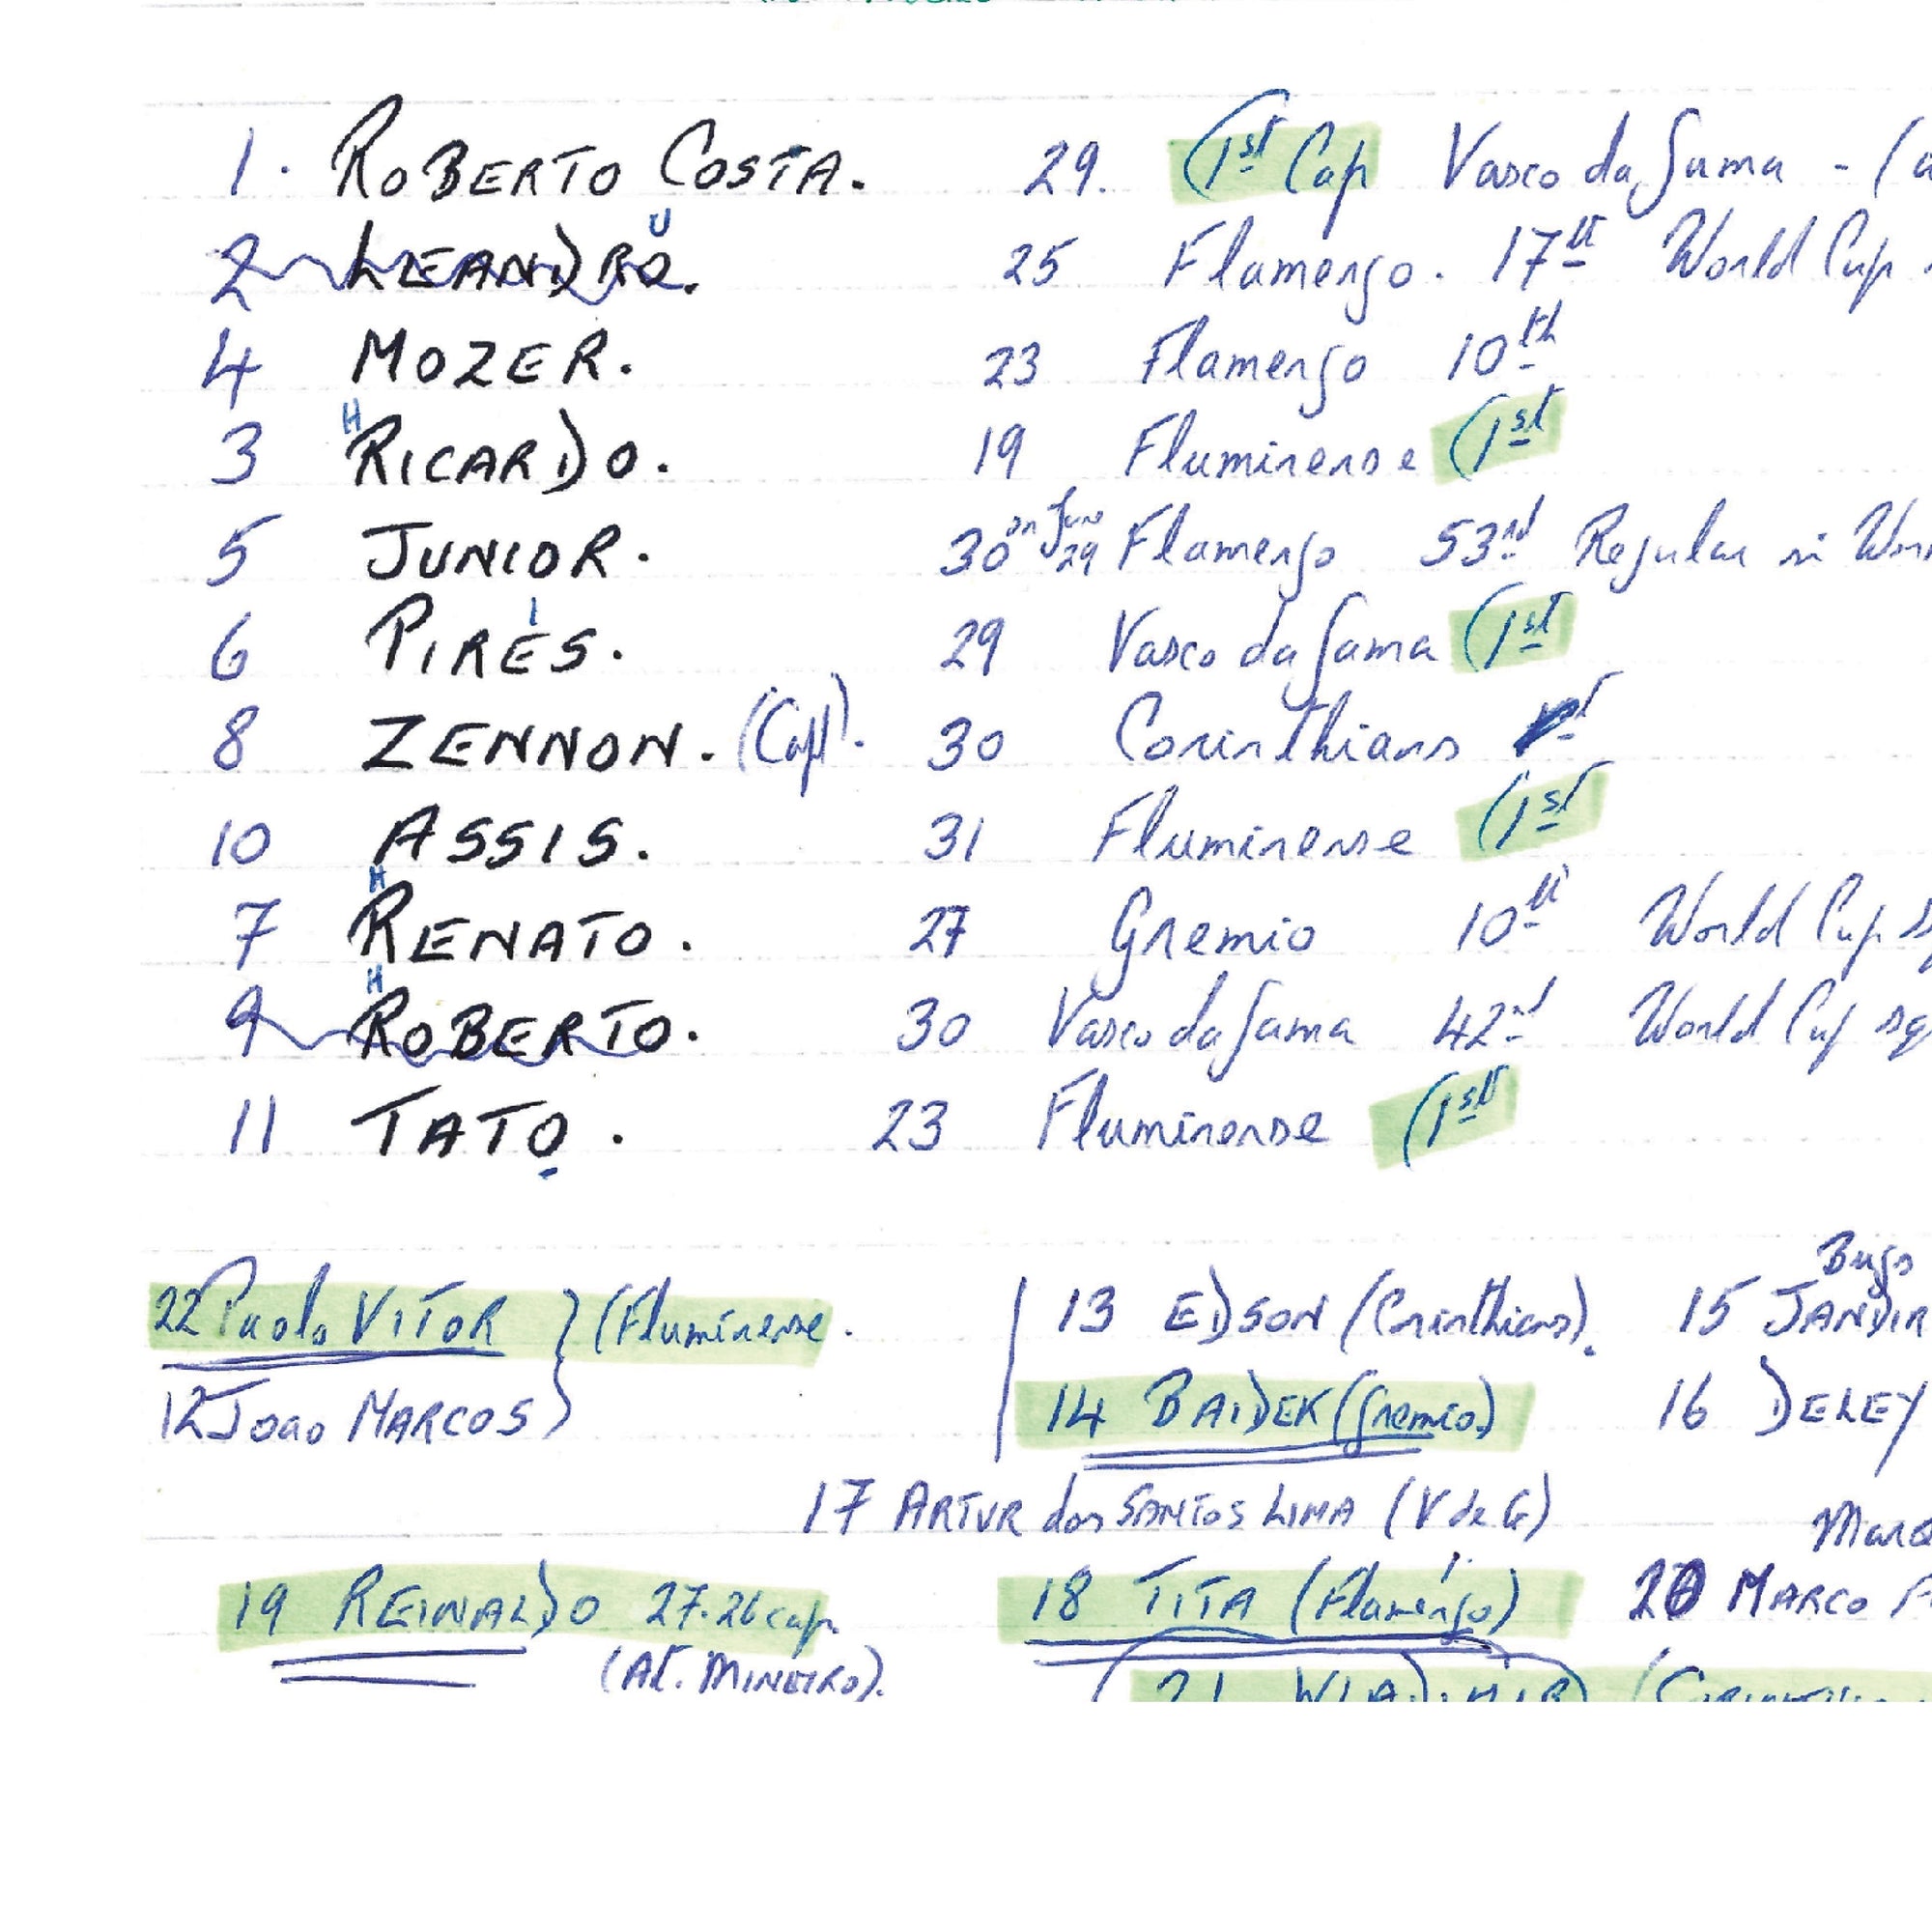 1. ROBERTO COSTA. 29. (1st Cap Vasco da Gama - (a
U
2 LEANDRO. 25 Flamengo. 17th World Cup
4 MOZER. 23 Flamengo 10th
H
3 RICARDO. 19 Fluminense (1st
5 JUNIOR. 30 on June 29 Flamengo 53rd Regular in Wor
I
6 PIRES. 29 Vasco da Gama (1st
8 ZENNON. (Capt). 30 Corinthians
10 ASSIS. 31 Fluminense (1st
H
7 RENATO. 27 Gremio 10th World Cup s
H
9 ROBERTO. 30 Vasco da Gama 42nd World Cup sq
11 TATO. 23 Fluminense (1st
22 Paolo VITOR } (Fluminense. 13 EDSON (Corinthians). 15 JANDIR
12 Joao MARCOS 14 BAIDEK (Gremio) 16 DELEY
17 ARTUR dos SANTOS LIMA (V de G)
19 REINALDO 27. 26 cap. 18 TITA (Flamengo) 20 MARCO
(At. MINEIRO).
21 WLADIMIR